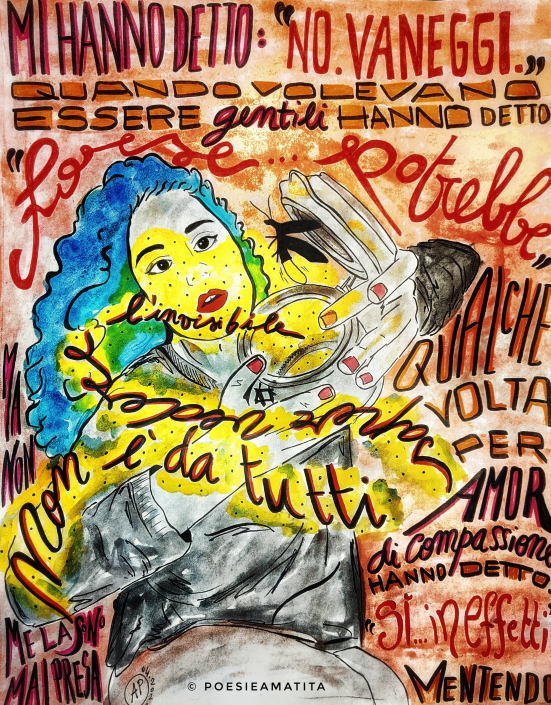 MI HANNO DETTO: "NO. VANEGGI."
QUANDO VOLEVANO
ESSERE gentili HANNO DETTO
"Forse... potrebbe"
QUALCHE
VOLTA
PER
AMOR
di compassione
HANNO DETTO:
"SÌ... in effetti"
MENTENDO
MA
NON
ME LA SONO
MAI PRESA
Non è da tutti
saper vedere
l'invisibile
AP
© POESIEAMATITA